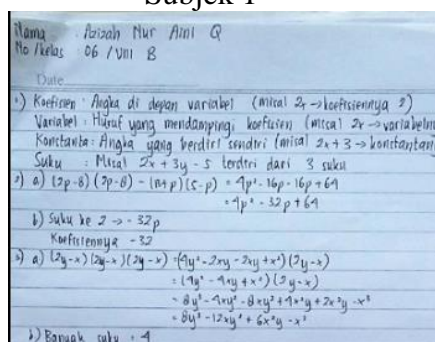 Subjek 1
Nama : Azizah Nur Aini Q
No /kelas 06 / VIII B
Date
1) Koefisien : Angka di depan variabel (misal 2x → koefisiennya 2)
Variabel : Huruf yang mendampingi koefisien (misal 2x → variabelny
Konstanta : Angka yang berdiri sendiri (misal 2x + 3 → konstantan
Suku : Misal 2x + 3y - 5 terdiri dari 3 suku
2) a) (2p-8) (2p-8) - (n+p) (5-p) = 4p² - 16p - 16p + 64
= 4p² - 32p + 64
b) Suku ke 2 → - 32p
Koefisiennya - 32
3) a) (2y-x) (2y-x) (2y-x) = (4y² - 2xy - 2xy + x²) (2y-x)
= (4y² - 4xy + x²) (2y-x)
= 8y³ - 4xy² - 8xy² + 4x²y + 2x²y - x³
= 8y³ - 12xy² + 6x²y - x³
b) Banyak suku = 4